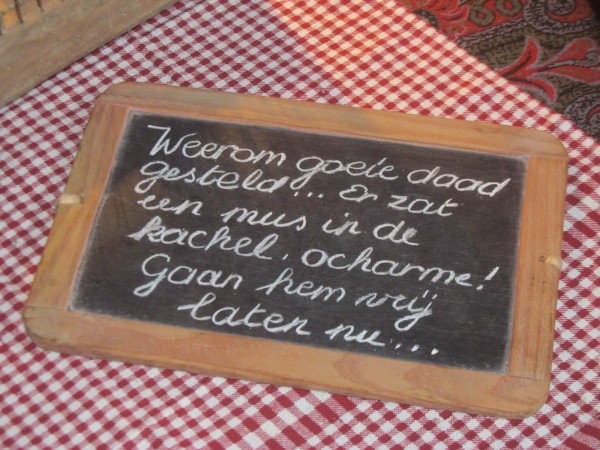 Weerom goeie daad
gesteld... Er zat
een mus in de
kachel, ocharme!
Gaan hem vrij
laten nu...